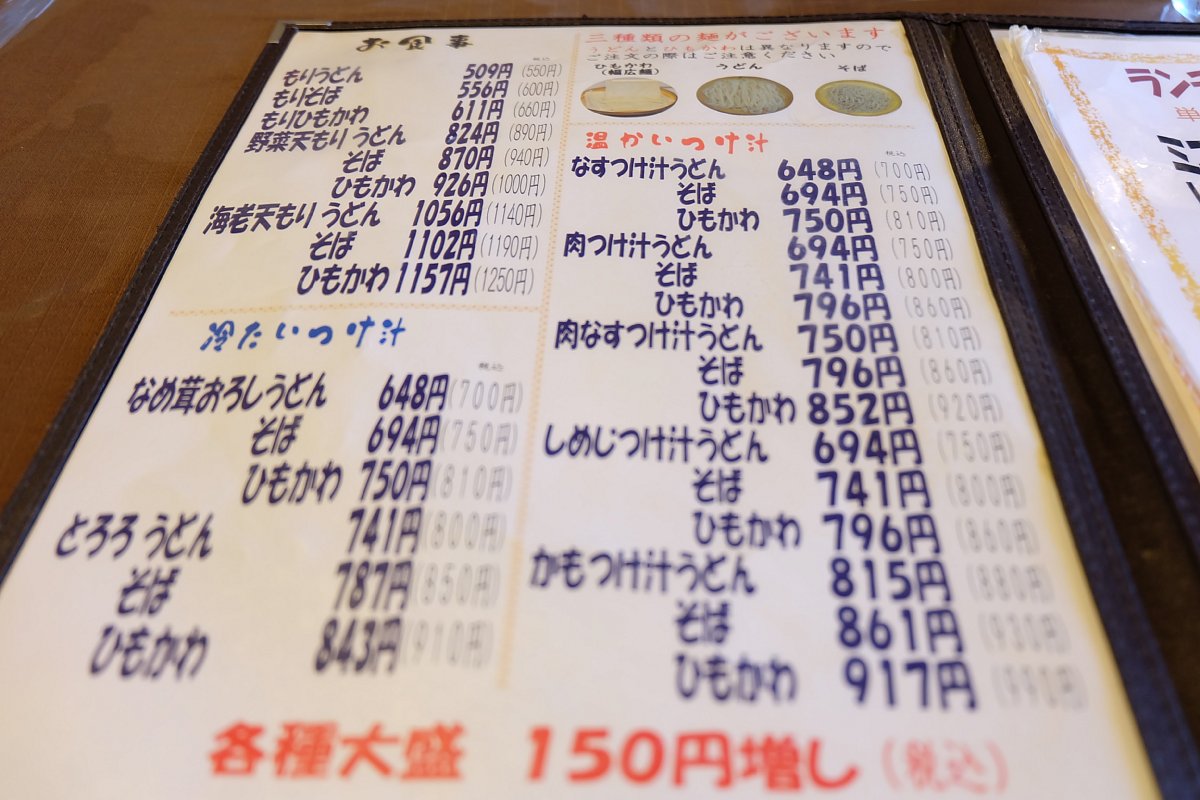 お食事
税込
もりうどん 509円 (550円)
もりそば 556円 (600円)
もりひもかわ 611円 (660円)
野菜天もり うどん 824円 (890円)
そば 870円 (940円)
ひもかわ 926円 (1000円)
海老天もり うどん 1056円 (1140円)
そば 1102円 (1190円)
ひもかわ 1157円 (1250円)
冷たいつけ汁
税込
なめ茸おろしうどん 648円 (700円)
そば 694円 (750円)
ひもかわ 750円 (810円)
とろろ うどん 741円 (800円)
そば 787円 (850円)
ひもかわ 843円 (910円)
三種類の麺がございます
うどんとひもかわは異なりますので
ご注文の際はご注意ください
ひもかわ うどん そば
(幅広麺)
温かいつけ汁
税込
なすつけ汁うどん 648円 (700円)
そば 694円 (750円)
ひもかわ 750円 (810円)
肉つけ汁うどん 694円 (750円)
そば 741円 (800円)
ひもかわ 796円 (860円)
肉なすつけ汁うどん 750円 (810円)
そば 796円 (860円)
ひもかわ 852円 (920円)
しめじつけ汁うどん 694円 (750円)
そば 741円 (800円)
ひもかわ 796円 (860円)
かもつけ汁うどん 815円 (880円)
そば 861円 (930円)
ひもかわ 917円 (990円)
各種大盛 150円増し (税込)
ラン